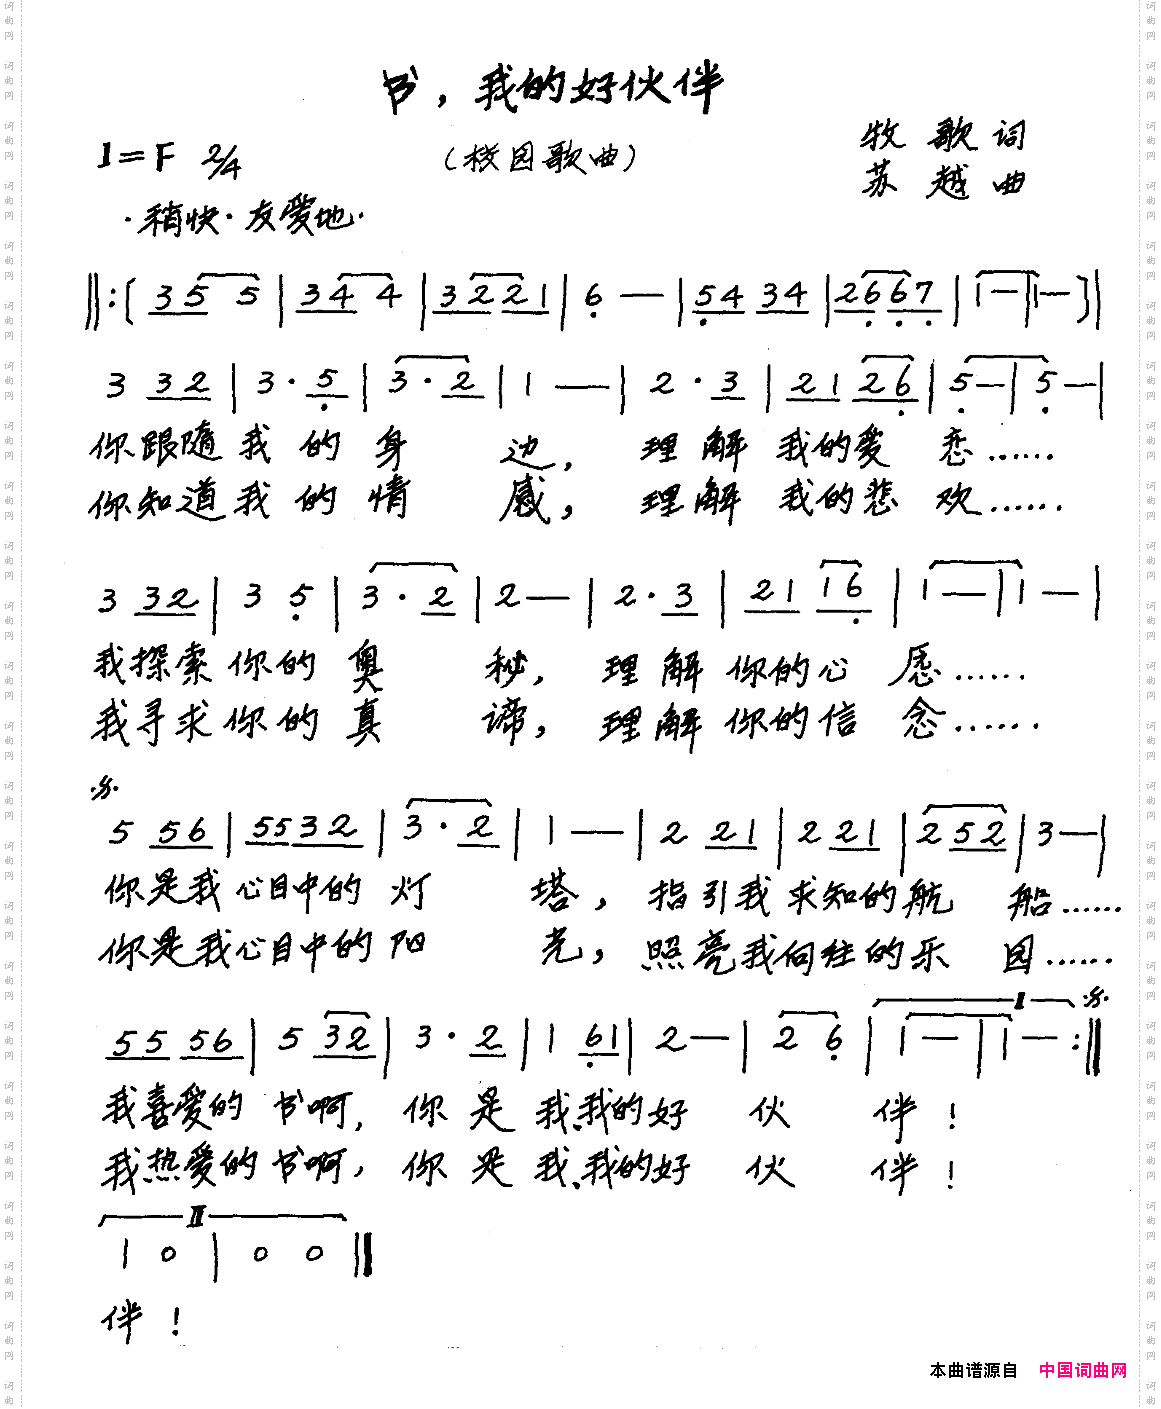 书，我的好伙伴
1=F 2/4
（校园歌曲）
牧 歌 词
苏 越 曲
·稍快·友爱地·
‖:[ 3 5 5 | 3 4 4 | 3 2 2 1 | 6 — | 5 4 3 4 | 2 6 6 7 | 1 — | 1 — ]|
3 3 2 | 3 · 5 | 3 · 2 | 1 — | 2 · 3 | 2 1 2 6 | 5 — | 5 — |
你跟随我的身 边，理解我的爱 恋……
你知道我的情 感，理解我的悲 欢……
3 3 2 | 3 5 | 3 · 2 | 2 — | 2 · 3 | 2 1 1 6 | 1 — | 1 — |
我探索你的奥 秘，理解你的心 愿……
我寻求你的真 谛，理解你的信 念……
5 5 6 | 5 5 3 2 | 3 · 2 | 1 — | 2 2 1 | 2 2 1 | 2 5 2 | 3 — |
你是我心目中的灯 塔，指引我求知的航 船……
你是我心目中的阳 光，照亮我向往的乐 园……
I
5 5 5 6 | 5 3 2 | 3 · 2 | 1 6 1 | 2 — | 2 6 | 1 — | 1 — :‖
我喜爱的书啊，你是我、我的好 伙 伴！
我热爱的书啊，你是我、我的好 伙 伴！
II
1 0 | 0 0 ‖
伴！
本曲谱源自 中国词曲网